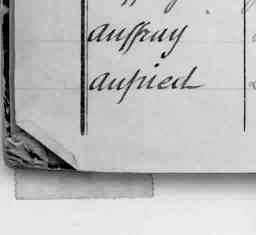 auffray
aufried